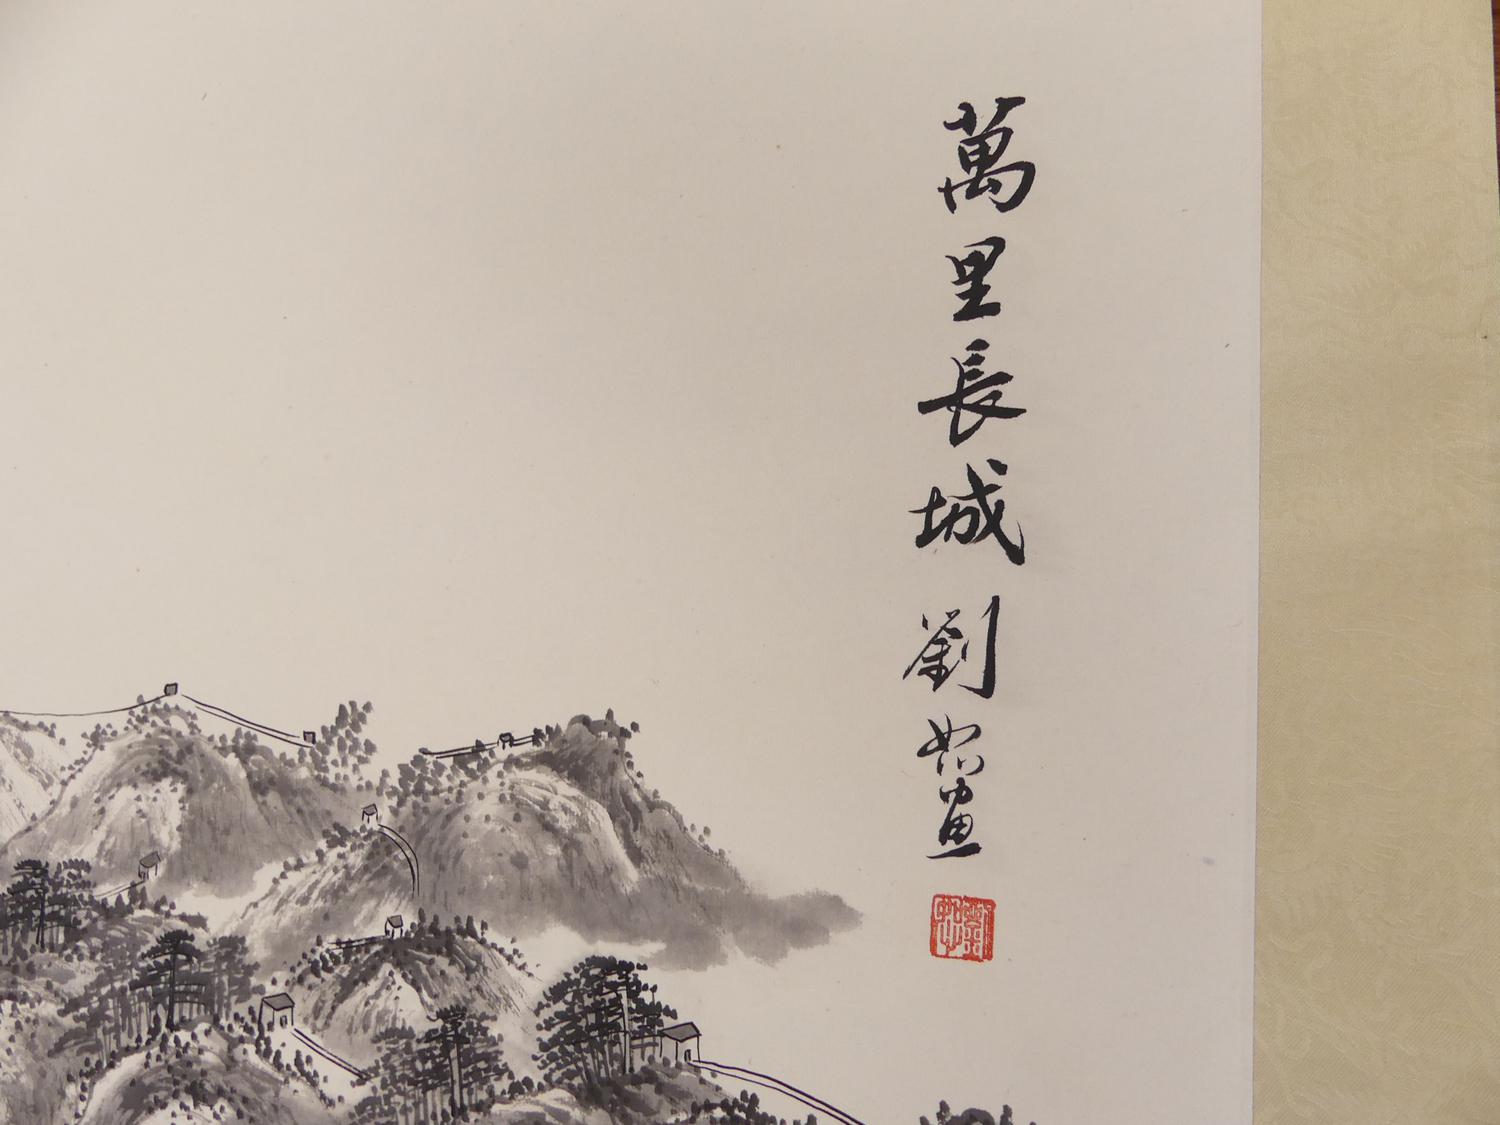 萬里長城 劉如畫